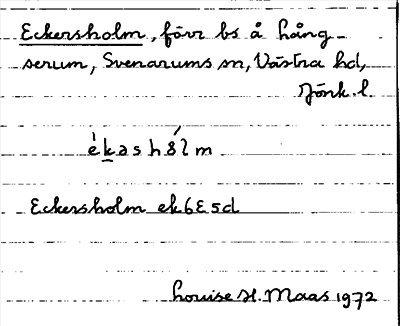 Eckersholm, förr bs å hång-
serum, Svenarums sn, Västra hd,
Jönk. l.
Eckersholm ek6E5d
Louise H. Maas 1972